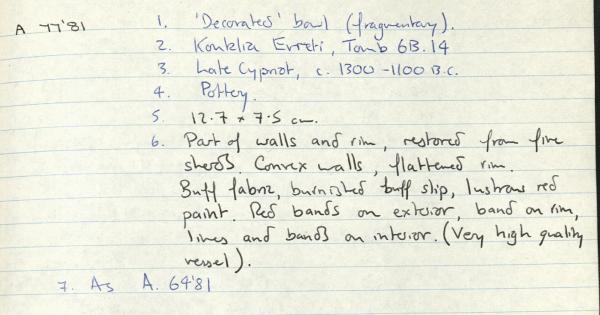 A 77'81
1. 'Decorated' bowl (fragmentary).
2. Kouklia Evreti, Tomb 6B.14
3. Late Cypriot, c. 1300-1100 B.C.
4. Pottery.
5. 12.7 x 7.5 cm.
6. Part of walls and rim, restored from five
sherds. Convex walls, flattened rim.
Buff fabric, burnished buff slip, lustrous red
paint. Red bands on exterior, band on rim,
lines and bands on interior. (Very high quality
vessel).
7. As A. 64'81